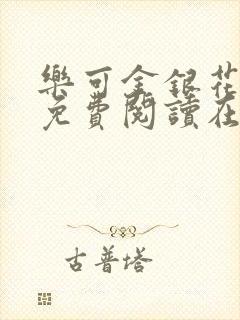 樂可金銀花
免費閱讀在
古普塔